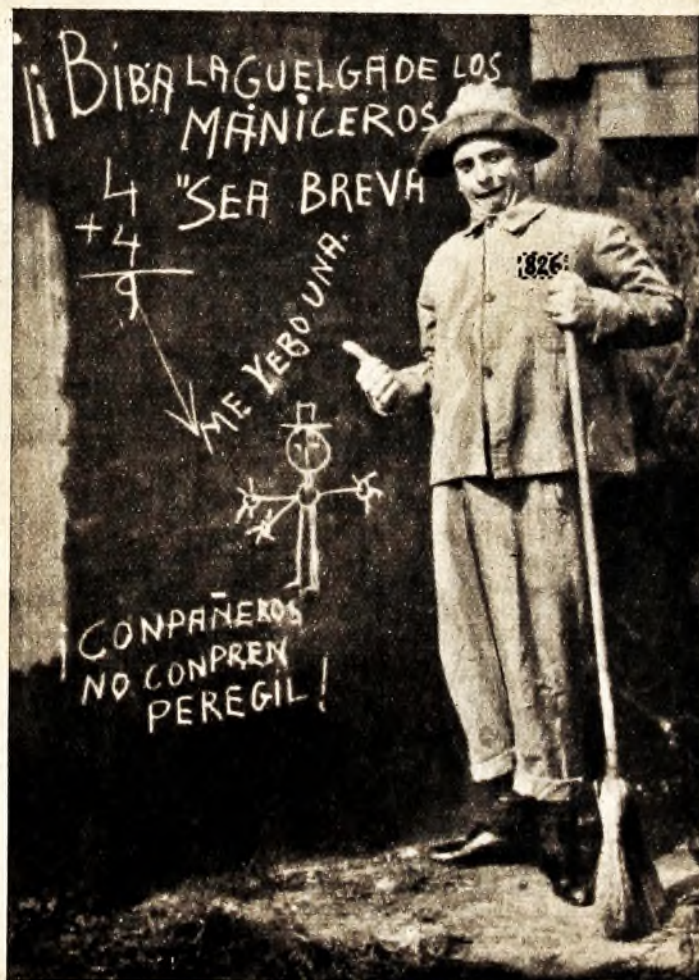 ¡¡BIBA LA GUELGA DE LOS
MANICEROS
"SEA BREVA
4
+4
9
ME YEBO UNA.
¡CONPAÑEROS
NO CONPREN
PEREGIL!
826